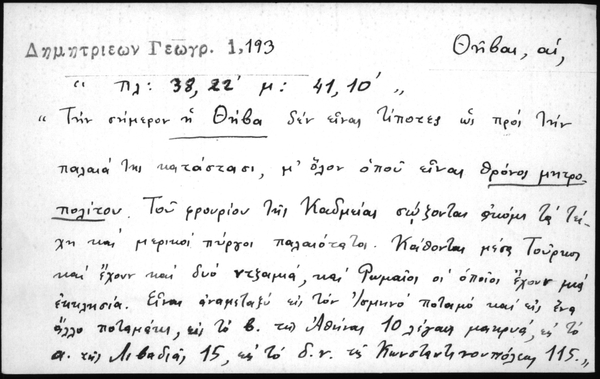 Δημητριεων Γεωγρ. 1,193
Θῆβαι, αἱ,
" πλ: 38, 22' μ: 41, 10' "
" Τὴν σήμερον ἡ Θήβα δέν εἶναι τίποτες ὡς πρός τὴν
παλαιά της κατάστασι, μ' ὅλον ὁποῦ εἶναι θρόνος μητρο
πολίτου. Τοῦ φρουρίου τῆς Καδμείας σώζονται ἀκόμι τὰ τεί-
χη καὶ μερικοί πύργοι παλαιότατοι. Κάθονται μέσα Τοῦρκοι
καὶ ἔχουν καὶ δυό ντζαμιά, καὶ Ρωμαῖοι οἱ ὁποῖοι ἔχουν μιά
ἐκκλησία. Εἶναι ἀναμεταξύ εἰς τὸν Ἰσμηνό ποταμό καὶ εἰς ἕνα
ἄλλο ποταμάκι, εἰς τὸ β. τῆς Ἀθήνας 10 λέγαις μακρυά, εἰς τὸ
α. τῆς Λιβαδιᾶς 15, εἰς τὸ δ.ν. τῆς Κωνσταντινουπόλεως 115. "